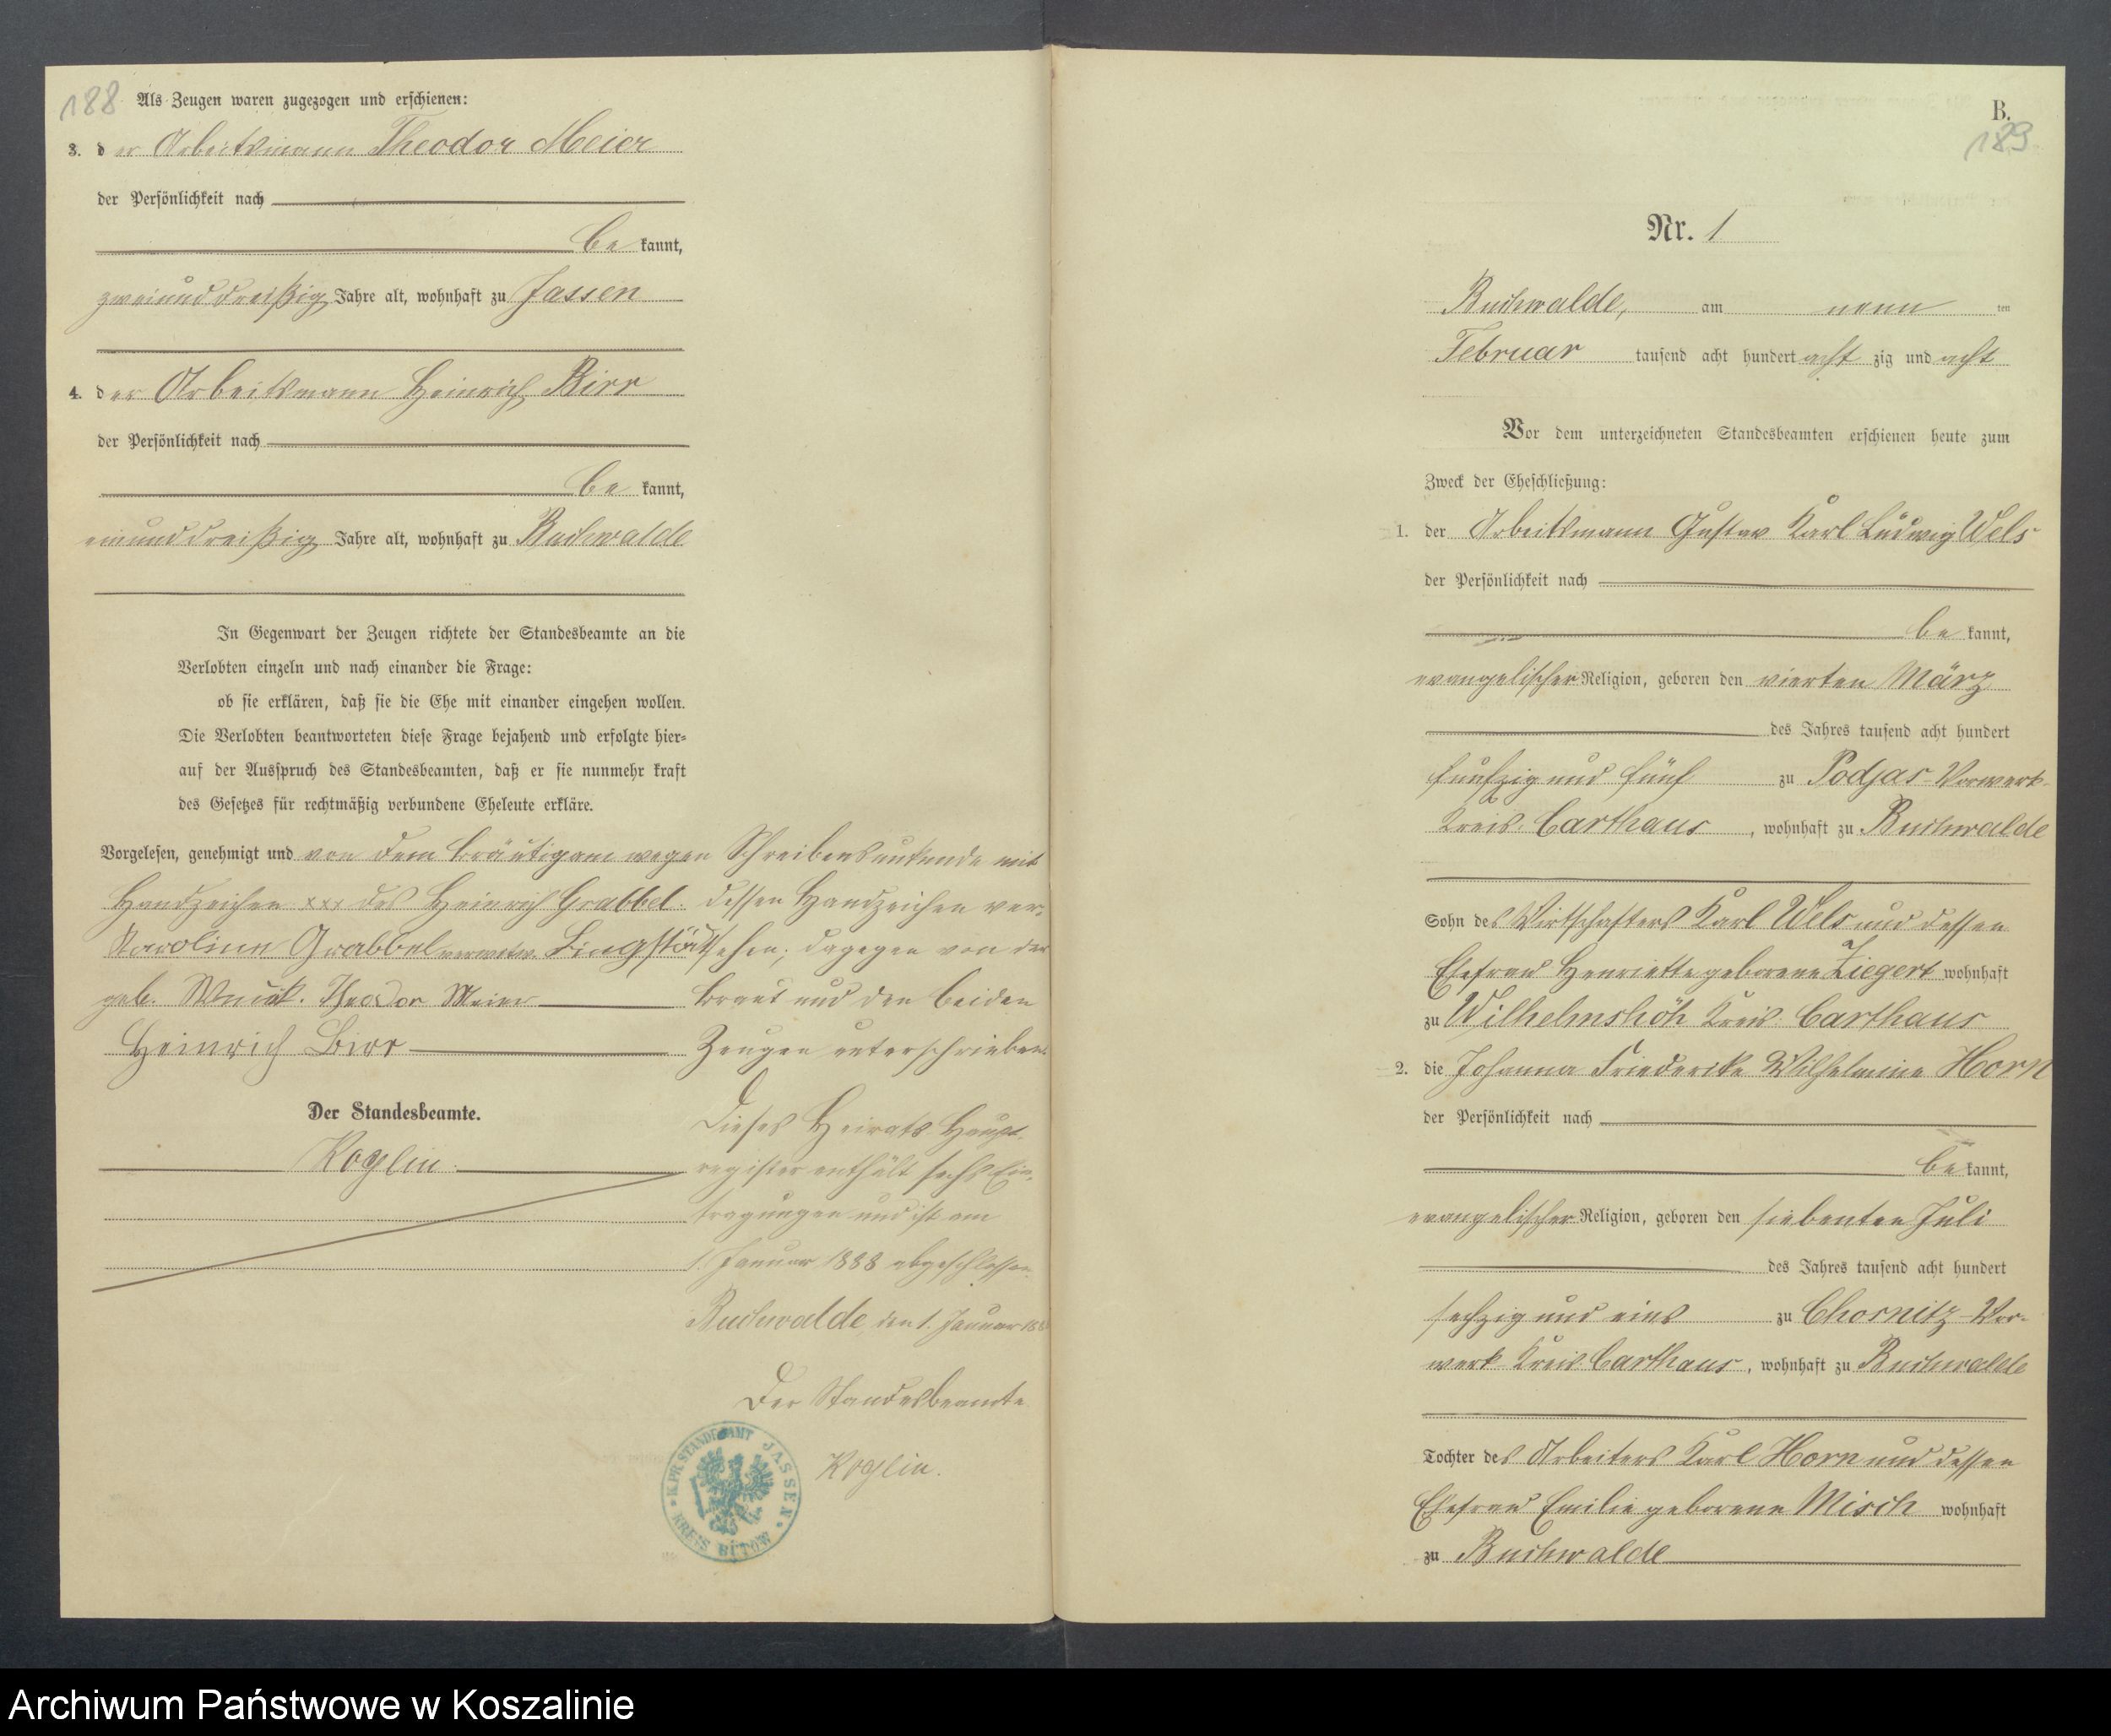 188
Als Zeugen waren zugezogen und erschienen:
3. der Arbeitsmann Theodor Meier
der Persönlichkeit nach
be kannt,
zweiunddreißig Jahre alt, wohnhaft zu Jassen
4. der Arbeitsmann Heinrich Birr
der Persönlichkeit nach
be kannt,
einunddreißig Jahre alt, wohnhaft zu Buchwalde
In Gegenwart der Zeugen richtete der Standesbeamte an die
Verlobten einzeln und nach einander die Frage:
ob sie erklären, daß sie die Ehe mit einander eingehen wollen.
Die Verlobten beantworteten diese Frage bejahend und erfolgte hier-
auf der Ausspruch des Standesbeamten, daß er sie nunmehr kraft
des Gesetzes für rechtmäßig verbundene Eheleute erkläre.
Vorgelesen, genehmigt und von dem Bräutigam wegen Schreibensunkunde mit
Handzeichen xxx des Heinrich Grabbel. dessen Handzeichen ver-
Karoline Grabbel verwitw. sehen; dagegen von der
geb. Theodor Meier Braut und den beiden
Heinrich Birr Zeugen unterschrieben.
Der Standesbeamte.
Koglin.
Dieses Heirats-Haupt-
register enthält sechs Ein-
tragungen und ist am
1. Januar 1888 abgeschlossen.
Buchwalde, den 1. Januar 188
Der Standesbeamte
Koglin.
KPR STANDESAMT JASSEN
KREIS BÜTOW
B.
189
Nr. 1
Buchwalde, am neun ten
Februar tausend acht hundert acht zig und acht
Vor dem unterzeichneten Standesbeamten erschienen heute zum
Zweck der Eheschließung:
1. der Arbeitsmann Gustav Karl Ludwig Wels
der Persönlichkeit nach
be kannt,
evangelischer Religion, geboren den vierten März
des Jahres tausend acht hundert
funfzig und fünf zu Podjas-Vorwerk
Kreis Carthaus, wohnhaft zu Buchwalde
Sohn des Wirthschafters Karl Wels und dessen
Ehefrau Henriette geborene Ziegert wohnhaft
zu Wilhelmshöh Kreis Carthaus
2. die Johanna Friederike Wilhelmine Horn
der Persönlichkeit nach
be kannt,
evangelischer Religion, geboren den siebenten Juli
des Jahres tausend acht hundert
sechzig und eins zu Chosnitz-Vor-
werk Kreis Carthaus, wohnhaft zu Buchwalde
Tochter des Arbeiters Karl Horn und dessen
Ehefrau Emilie geborene Misch wohnhaft
zu Buchwalde
Archiwum Państwowe w Koszalinie